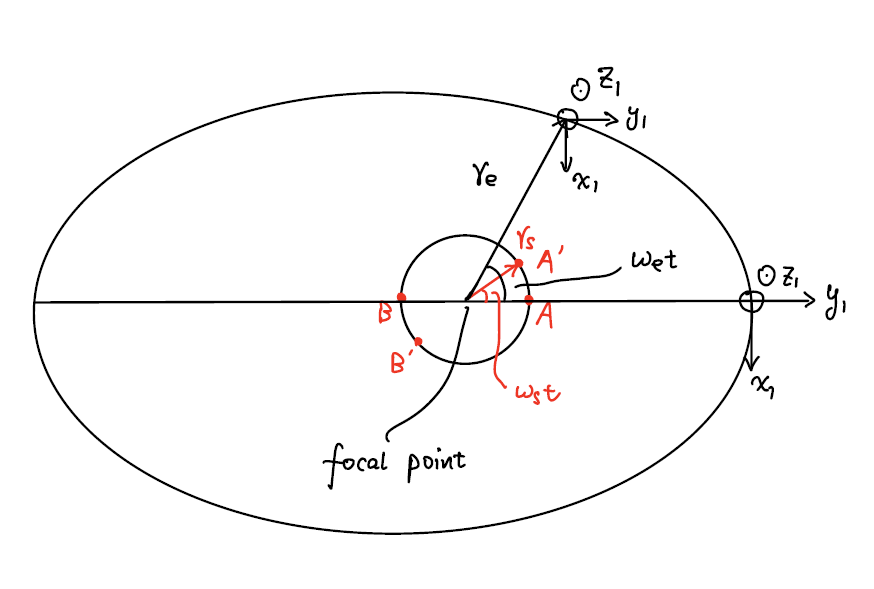 z₁
y₁
x₁
re
rs
A'
wet
z₁
y₁
B
A
B'
x₁
wst
focal point